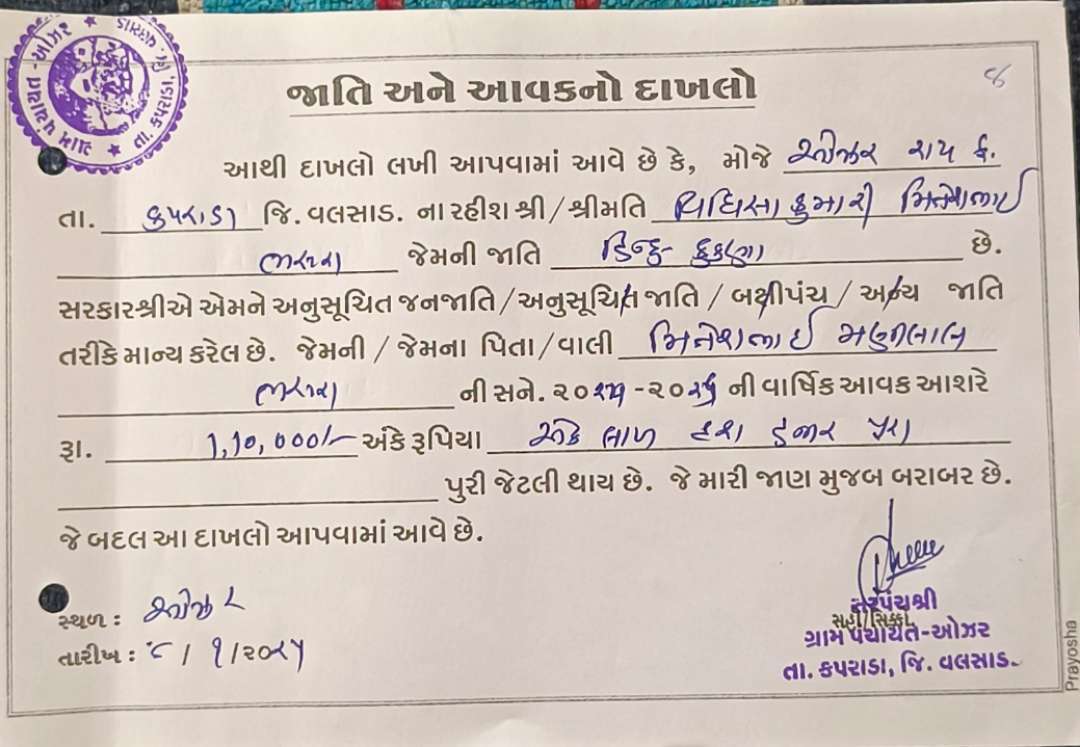 ગ્રામ પંચાયત - ઓઝર ★ તા. કપરાડા, જિ. વલસાડ ★
જાતિ અને આવકનો દાખલો
આથી દાખલો લખી આપવામાં આવે છે કે, મોજે ઓઝર
તા. કપરાડા જિ. વલસાડ. ના રહીશ શ્રી/શ્રીમતિ કુમારી મિતેશભાઈ
જેમની જાતિ હિન્દુ કુકણા છે.
સરકારશ્રીએ એમને અનુસૂચિત જનજાતિ/અનુસૂચિત જાતિ / બક્ષીપંચ / અન્ય જાતિ
તરીકે માન્ય કરેલ છે. જેમની / જેમના પિતા/વાલી મિતેશભાઈ મણીલાલ
ની સને. ૨૦ -૨૦ ની વાર્ષિક આવક આશરે
રૂા. 1,10,000/- અંકે રૂપિયા એક લાખ દશ હજાર પુરા
પુરી જેટલી થાય છે. જે મારી જાણ મુજબ બરાબર છે.
જે બદલ આ દાખલો આપવામાં આવે છે.
સ્થળ : ઓઝર
તારીખ : ૮/૧/૨૦૨૫
સરપંચશ્રી
સહી/સિક્કા
ગ્રામ પંચાયત-ઓઝર
તા. કપરાડા, જિ. વલસાડ.
Prayosha